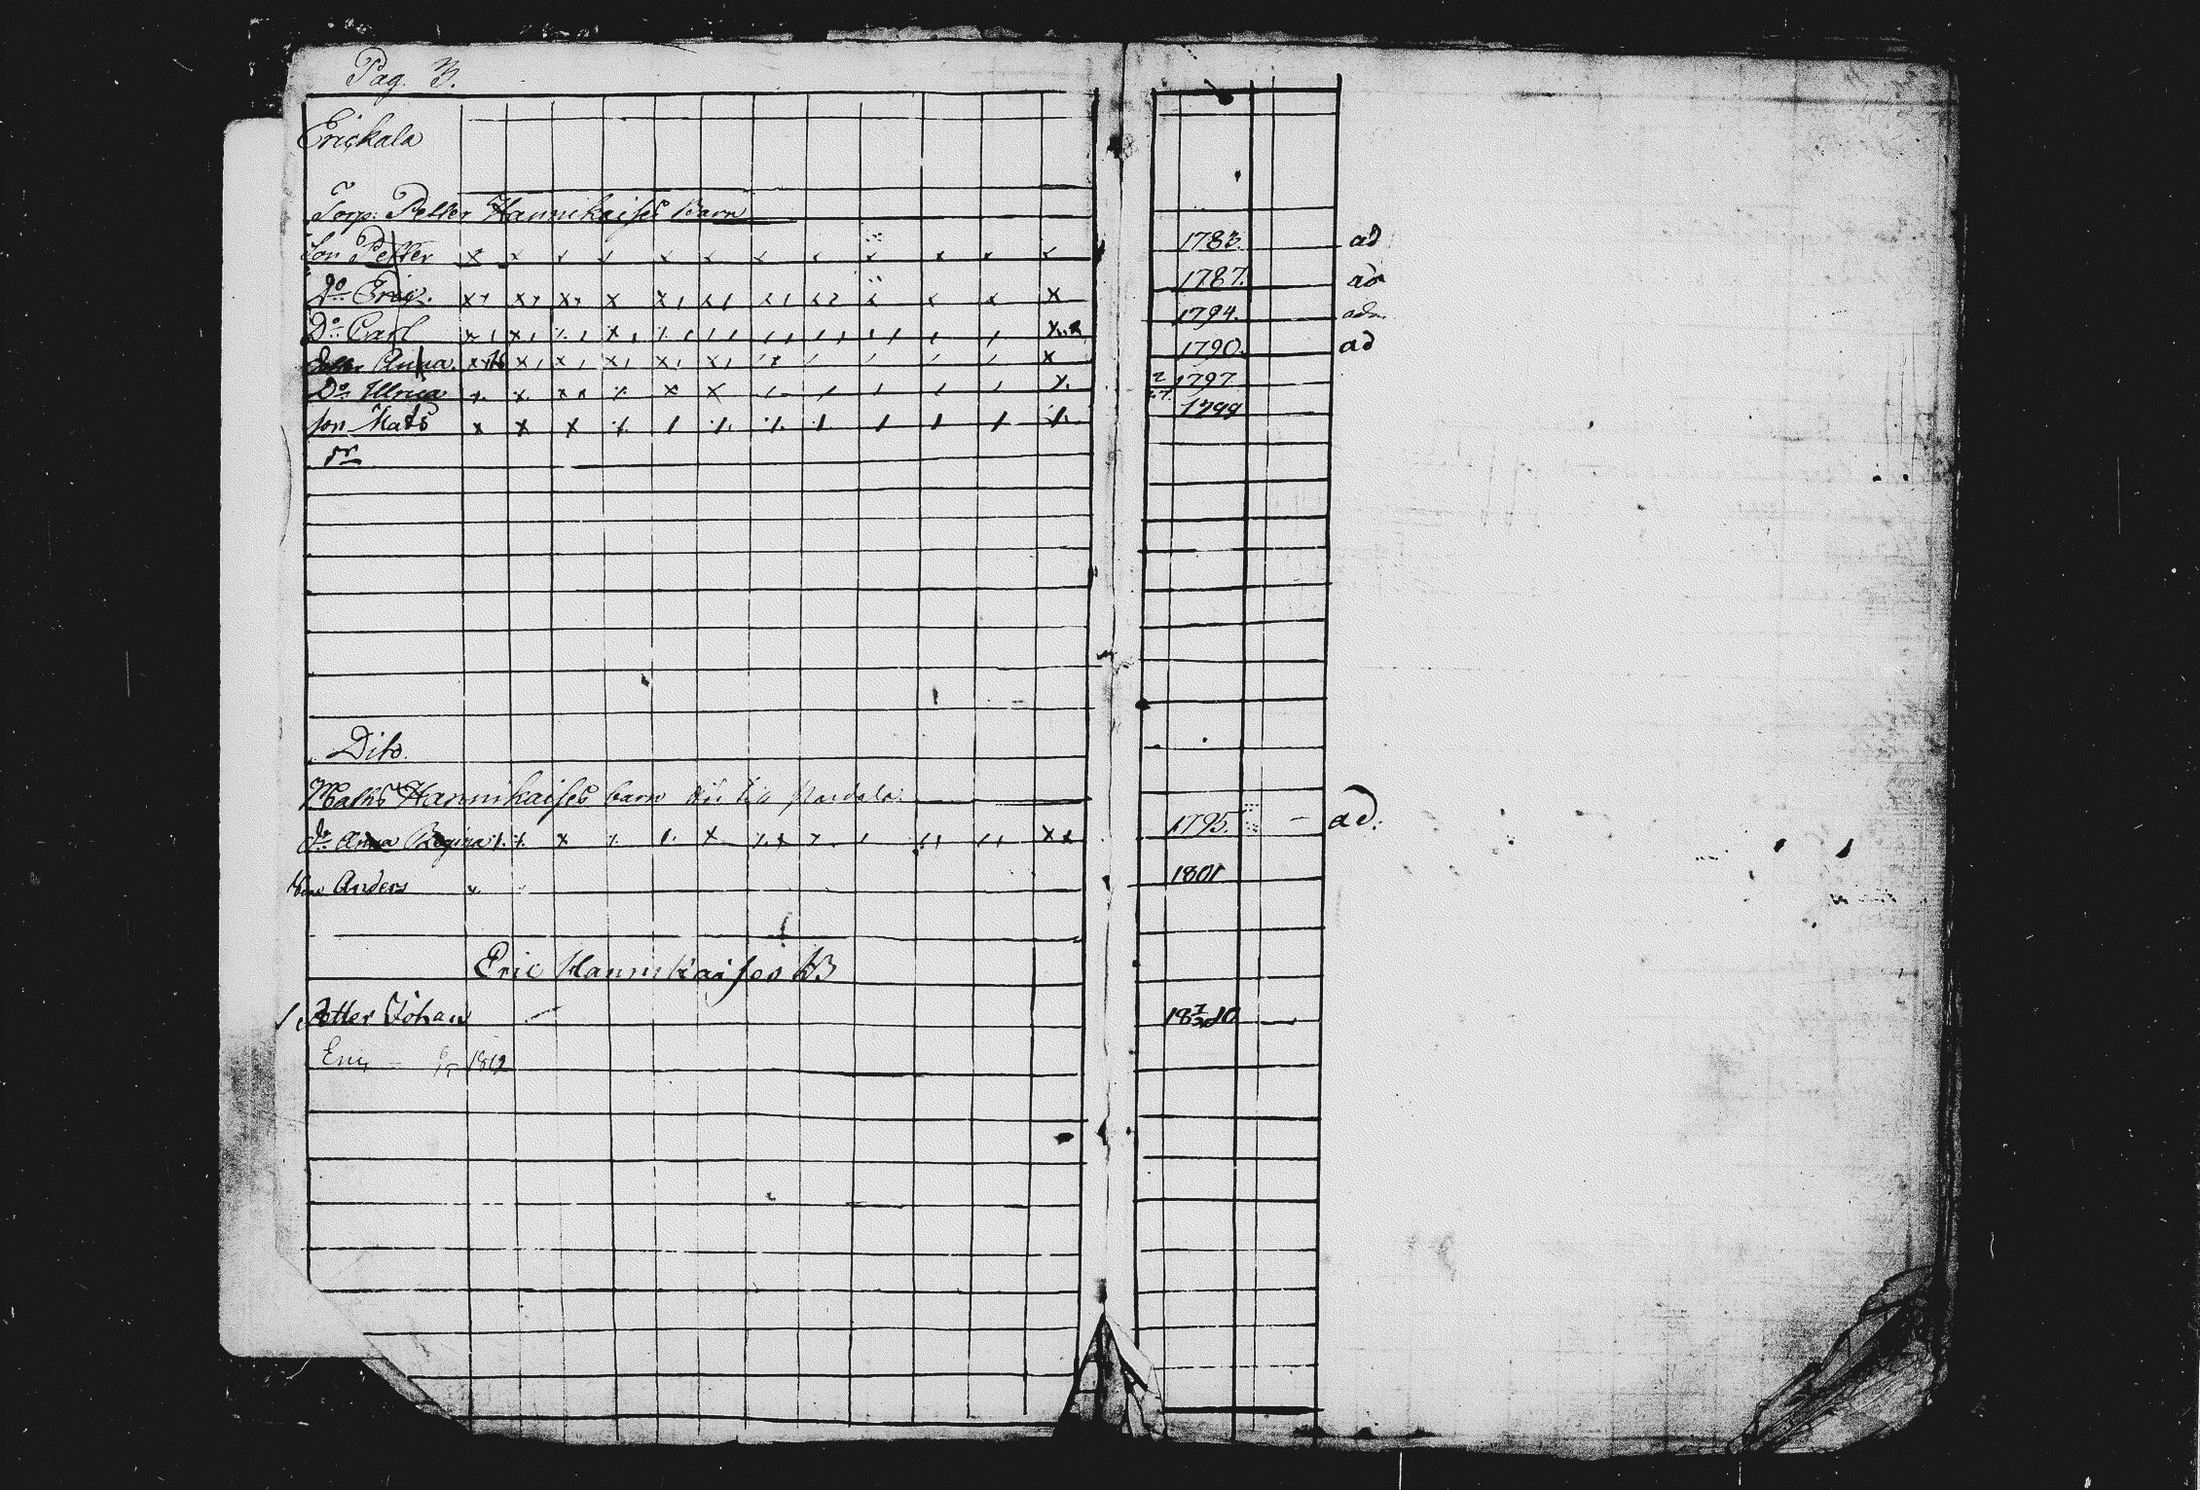 Pag. 3.
Erickala
Torp. Petter Hannikaises Barn
Son Petter 1783. ad
Do Eric. 1787. ad
Do Carl 1794. adm
Dotter Anna. 1790. ad
Do Ulrica 1797
Son Mats 1799
Dito.
Maths Hannikaises barn
Do Anna Regina 1795. ad.
Anders 1801
Eric Hannikaises B
Petter Johan 18 10
Eric 1812